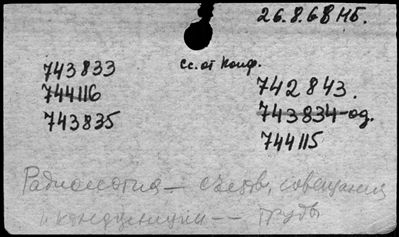 26.8.68 Нб.
Сс. от Конф.
743833
744116
743835
742843.
743834-од.
744115
Радиология — съезды, совещания
и конференции -- Труды